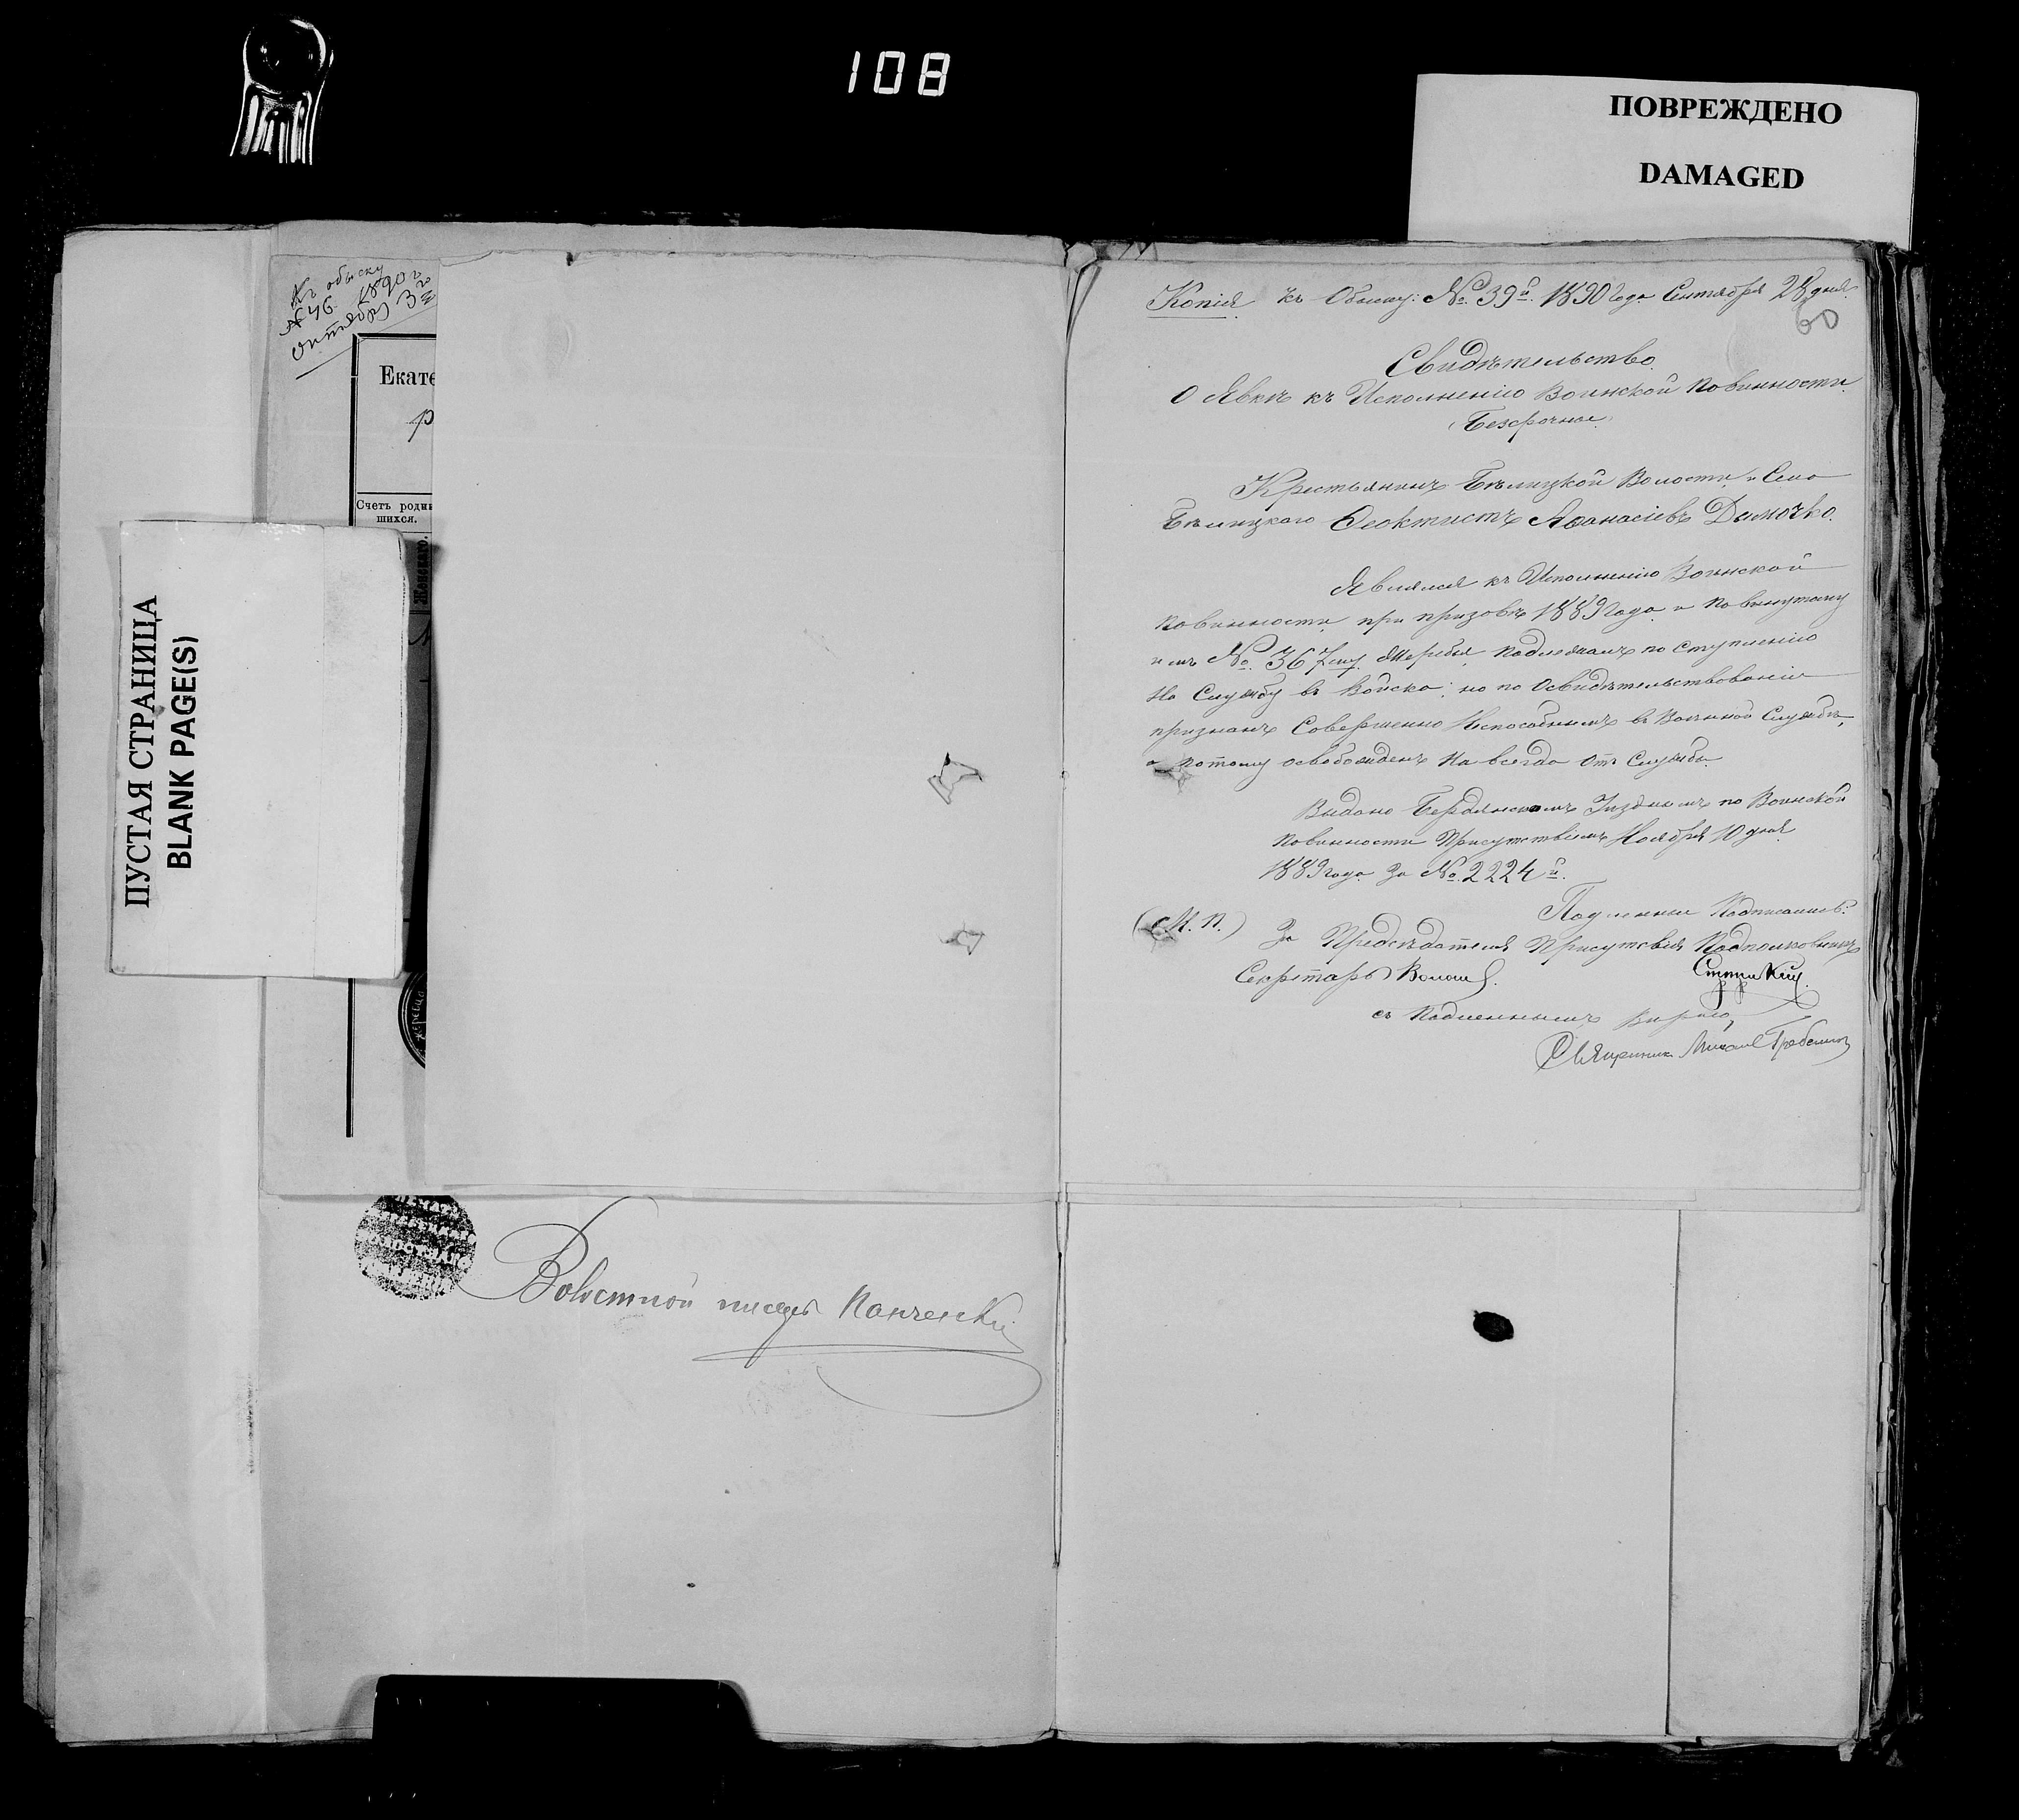 108
ПОВРЕЖДЕНО
DAMAGED
Къ обыску
№ 46. 1890 г
октября 3го
Екате
р
Счетъ роди
шихся.
Женскаго.
ПУСТАЯ СТРАНИЦА
BLANK PAGE(S)
Волостной писарь
Копія къ Обыску: № 39й. 1890 года Сентября 28 дня.
60
Свидѣтельство.
О Явкѣ къ Исполненію Воинской Повинности.
Безсрочное.
Крестьянинъ Бѣлицкой Волости и Села
Бѣлицкаго Ѳеоктистъ Аѳанасіевъ Дымочко.
Являлся къ Исполненію Воинской
Повинности при призовѣ 1889 года и по вынутому
имъ № 367му жеребья, подлежалъ по ступленію
На Службу въ Войска; но по Освидѣтельствованіи
признанъ Совершенно Неспособнымъ въ Военной Службѣ,
а потому освобожденъ На всегда Отъ Службы.
Выдано Бердянскимъ Уѣзднымъ по Воинской
Повинности Присутствіемъ Ноября 10 дня
1889 года За № 2224й.
Подлинные Подписали:
(М. П.) За Предсѣдателя Присутствія Подполковникъ
Секретарь
съ Подленнымъ Вѣрно,
Священникъ Михаилъ